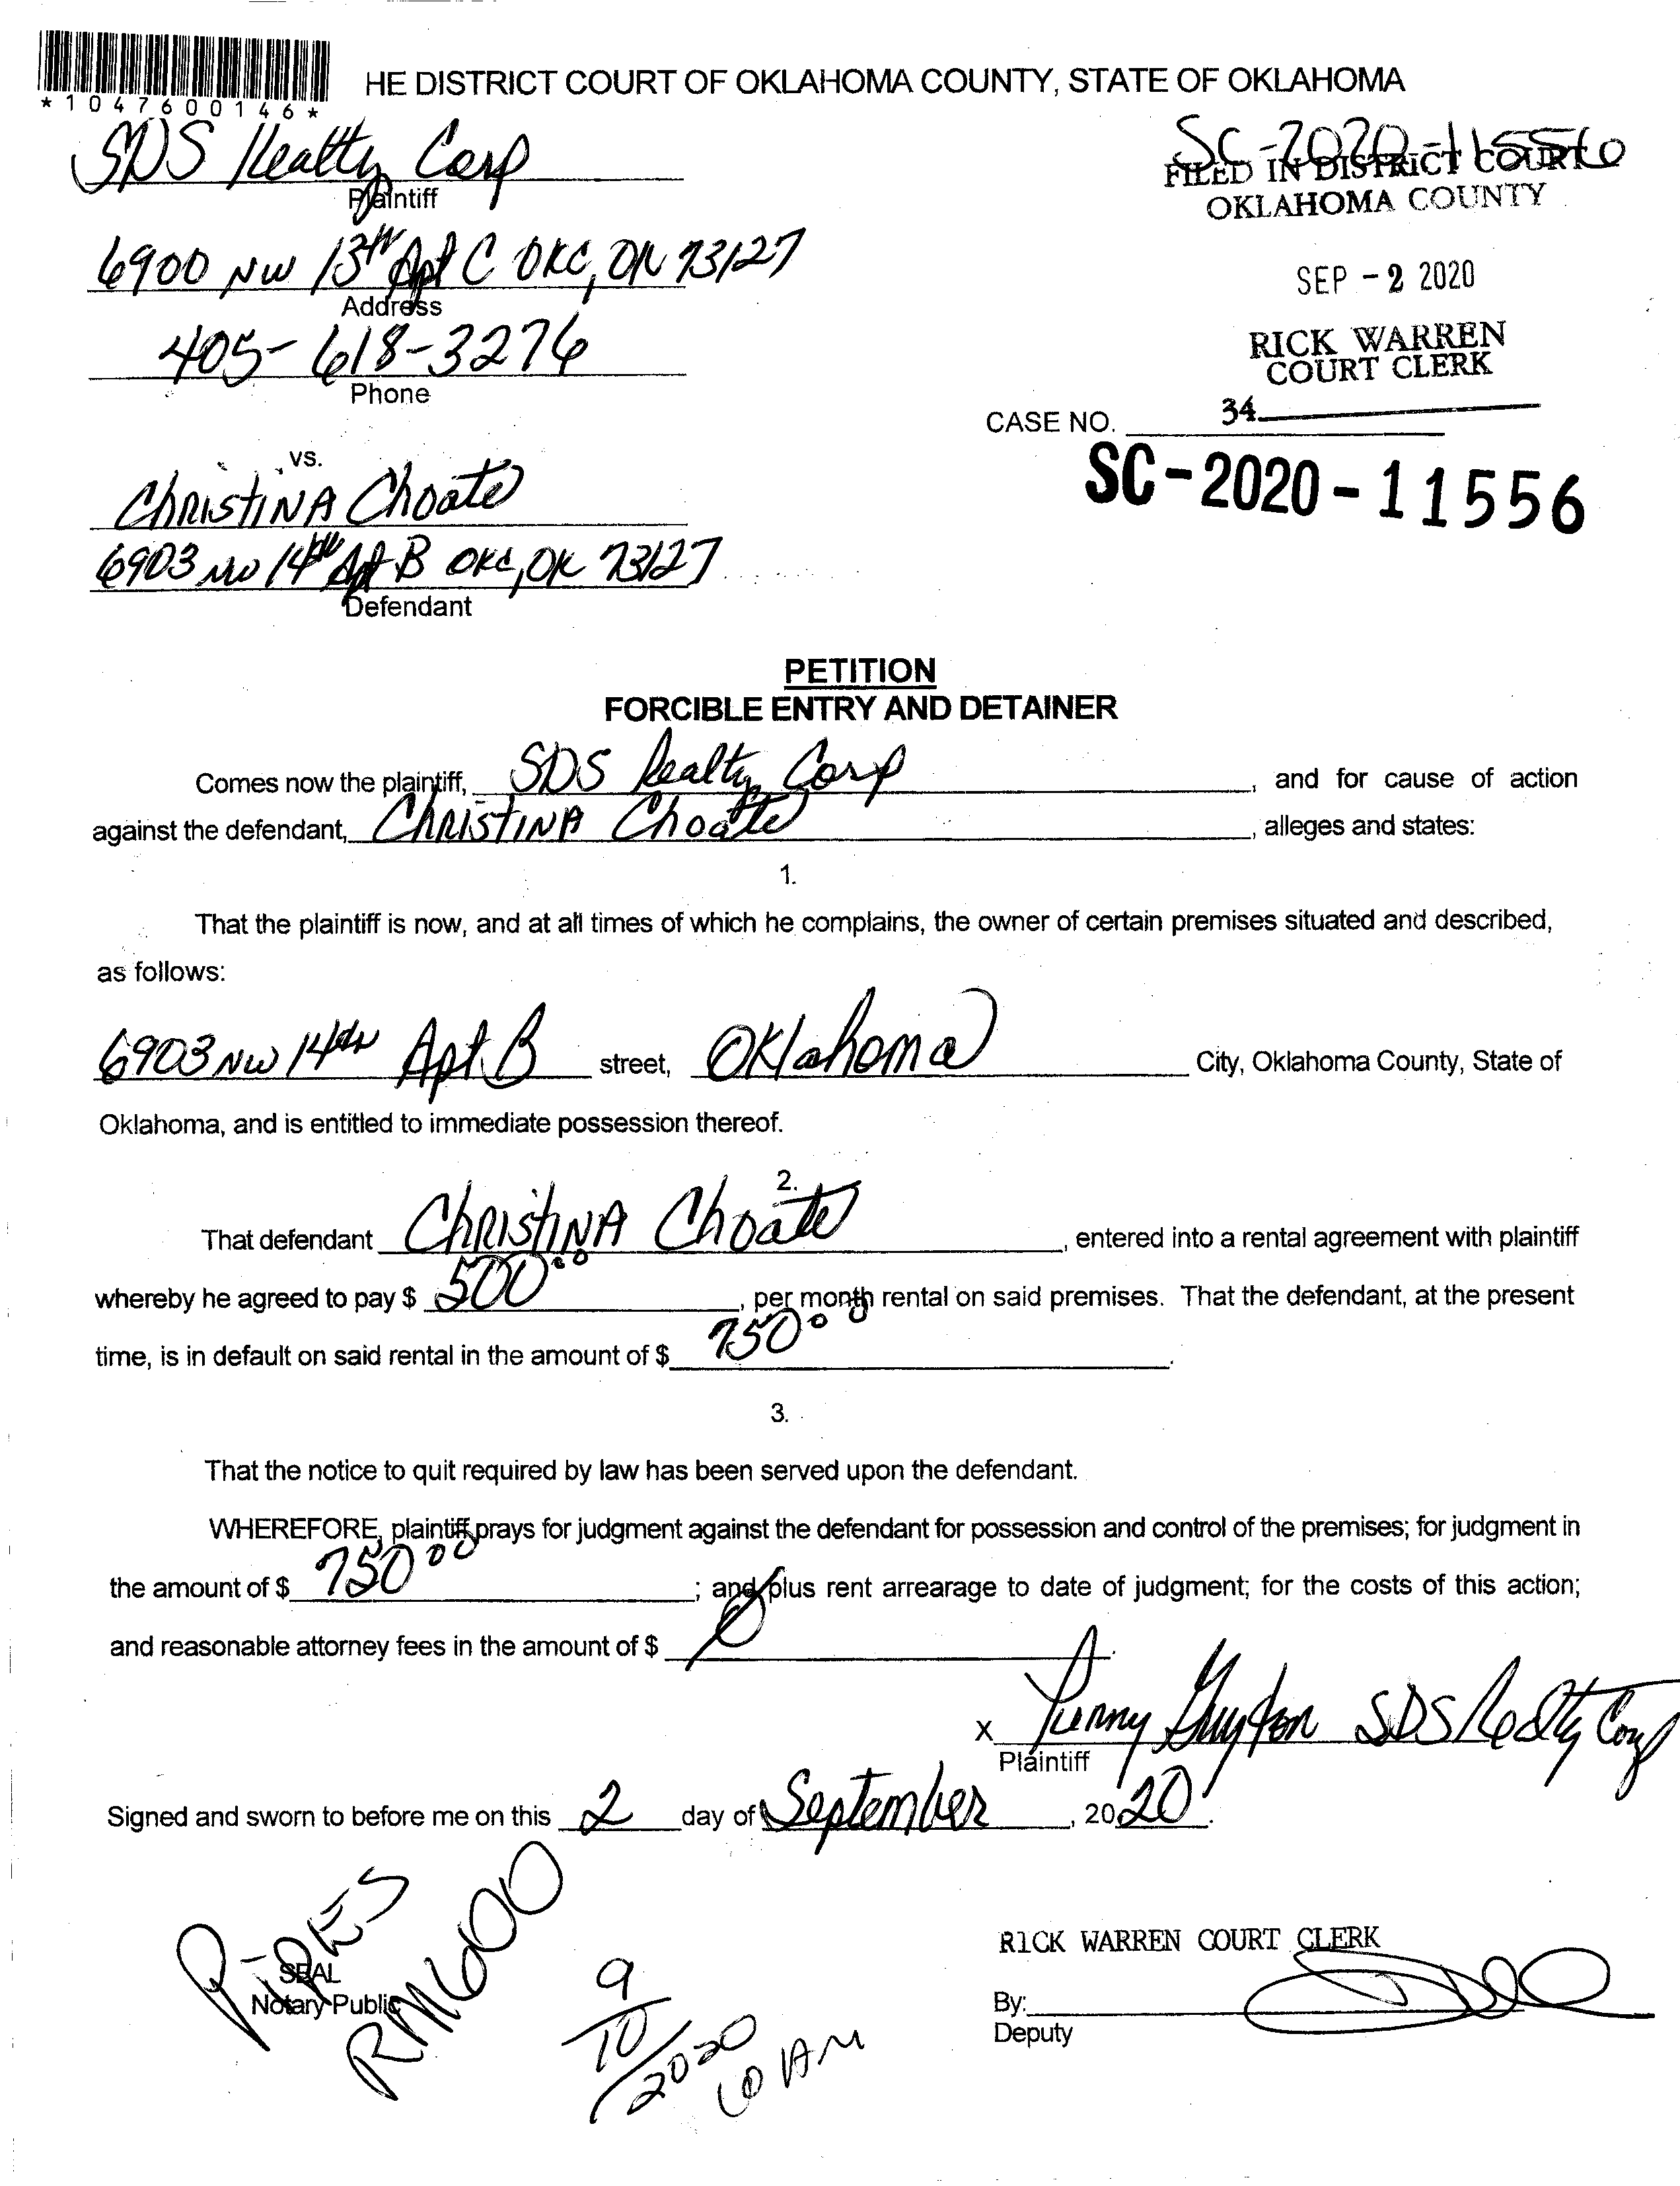 HE DISTRICT COURT OF OKLAHOMA COUNTY, STATE OF OKLAHOMA
*1047600146*
SDS Realty Corp
Plaintiff
SC-2020-11556
FILED IN DISTRICT COURT
OKLAHOMA COUNTY
6900 NW 13th Apt C OKC, OK 73127
Address
SEP - 2 2020
405-618-3276
Phone
RICK WARREN
COURT CLERK
34
CASE NO.
SC-2020-11556
vs.
Christina Choate
6903 NW 14th Apt B OKC, OK 73127
Defendant
PETITION
FORCIBLE ENTRY AND DETAINER
Comes now the plaintiff, SDS Realty Corp, and for cause of action
against the defendant, Christina Choate, alleges and states:
1.
That the plaintiff is now, and at all times of which he complains, the owner of certain premises situated and described,
as follows:
6903 NW 14th Apt B street, Oklahoma City, Oklahoma County, State of
Oklahoma, and is entitled to immediate possession thereof.
2.
That defendant Christina Choate, entered into a rental agreement with plaintiff
whereby he agreed to pay $ 500.00, per month rental on said premises. That the defendant, at the present
time, is in default on said rental in the amount of $ 750.00.
3.
That the notice to quit required by law has been served upon the defendant.
WHEREFORE, plaintiff prays for judgment against the defendant for possession and control of the premises; for judgment in
the amount of $ 750.00; and plus rent arrearage to date of judgment; for the costs of this action;
and reasonable attorney fees in the amount of $ 0.
X Penny Guyton SDS Realty Corp
Plaintiff
Signed and sworn to before me on this 2 day of September, 2020.
Pipkes
RM600
SEAL
Notary Public
9/10/2020
10 AM
RICK WARREN COURT CLERK
By:
Deputy